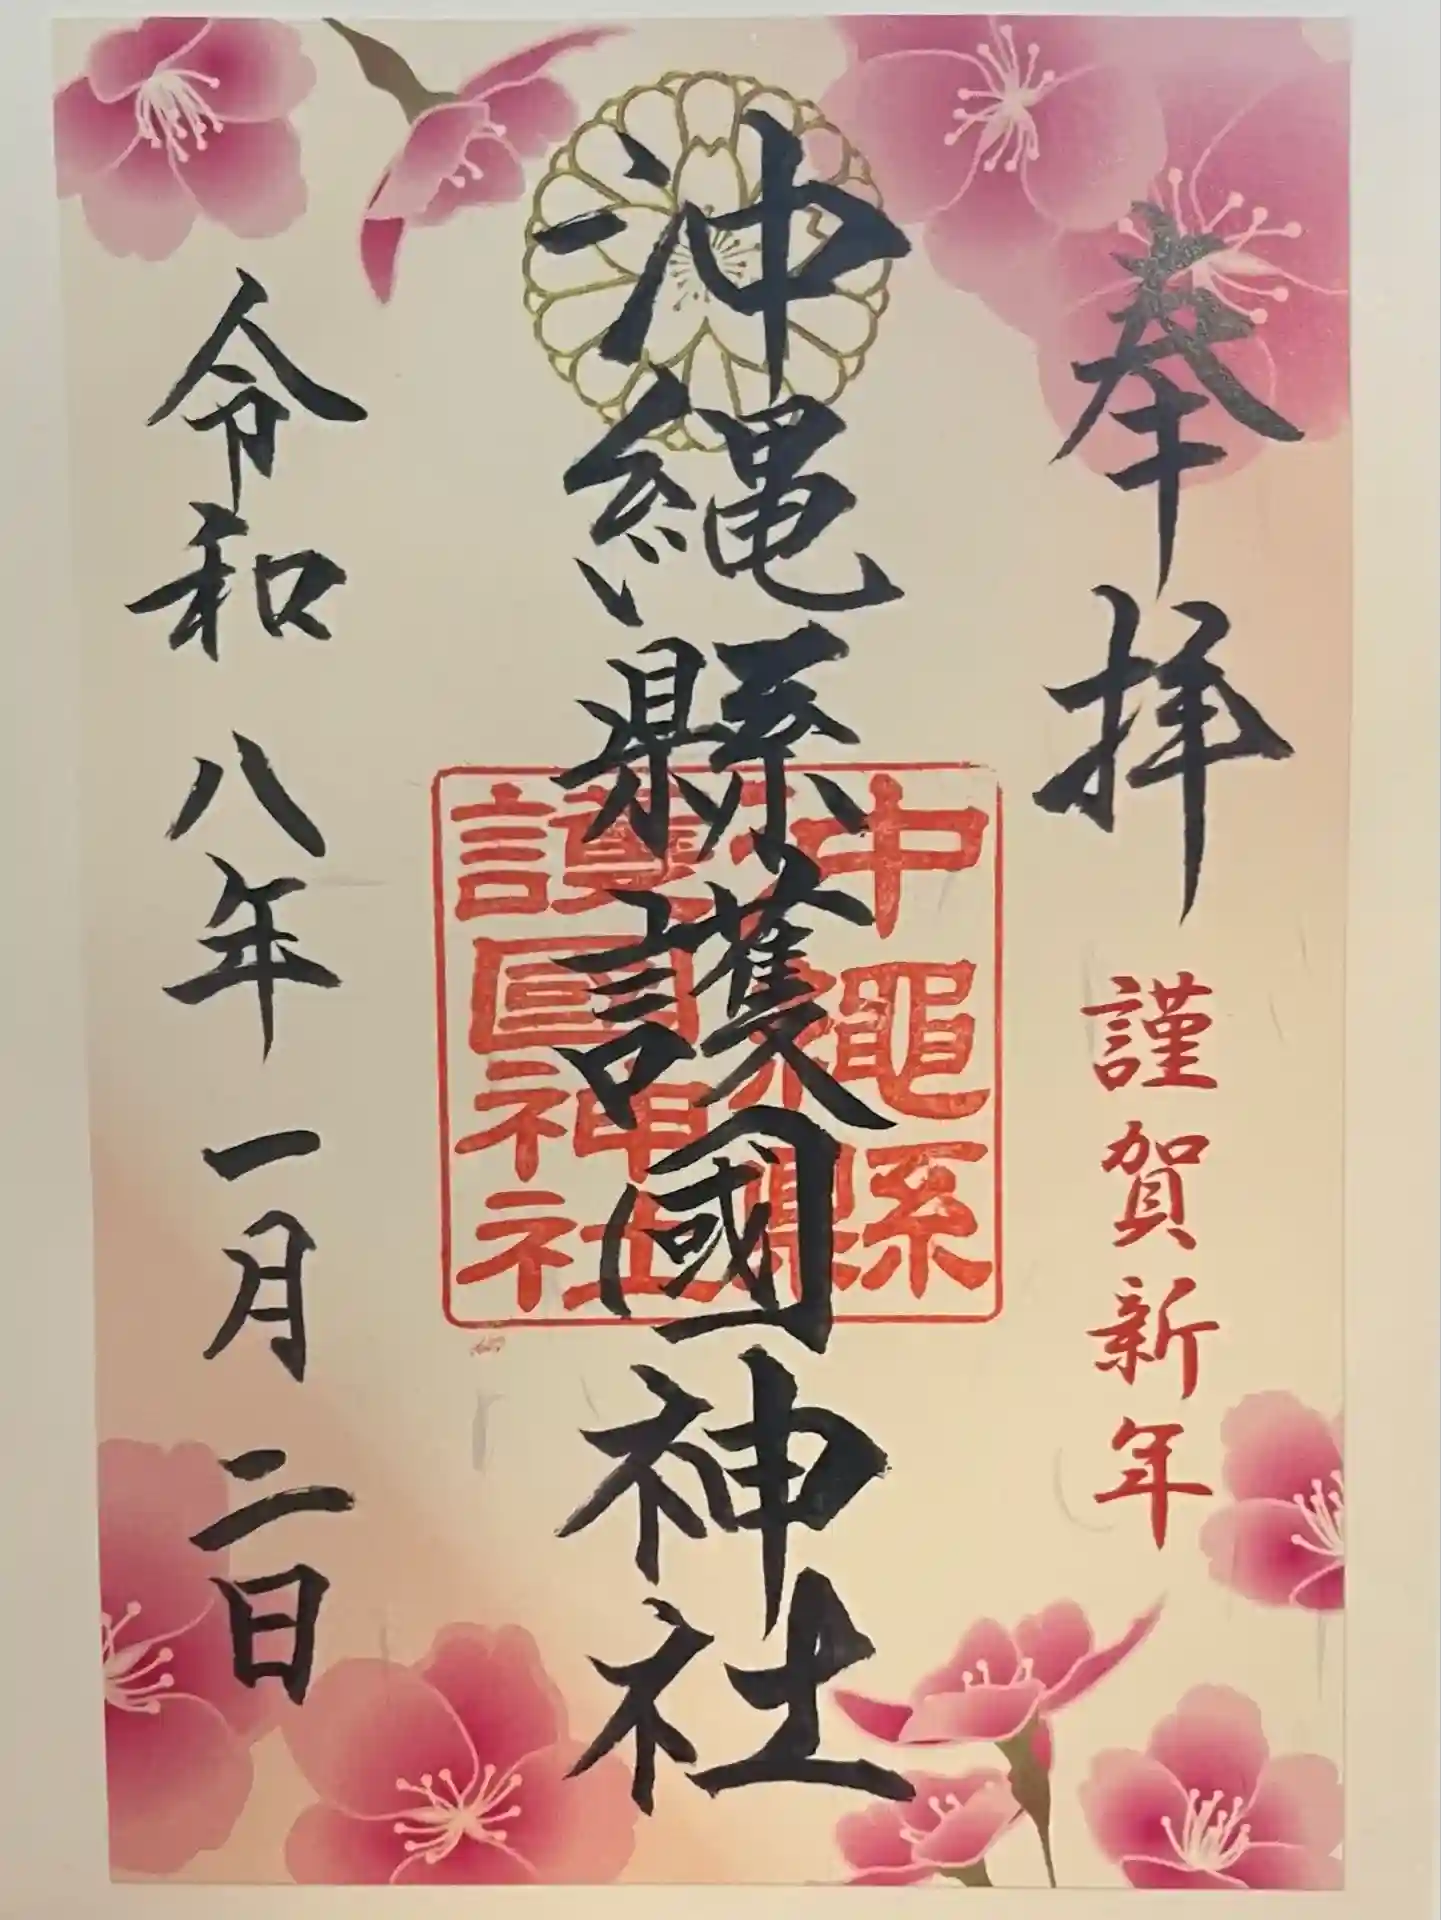 奉拝
謹賀新年
沖縄縣護國神社
沖繩縣
護國神社
令和八年一月二日